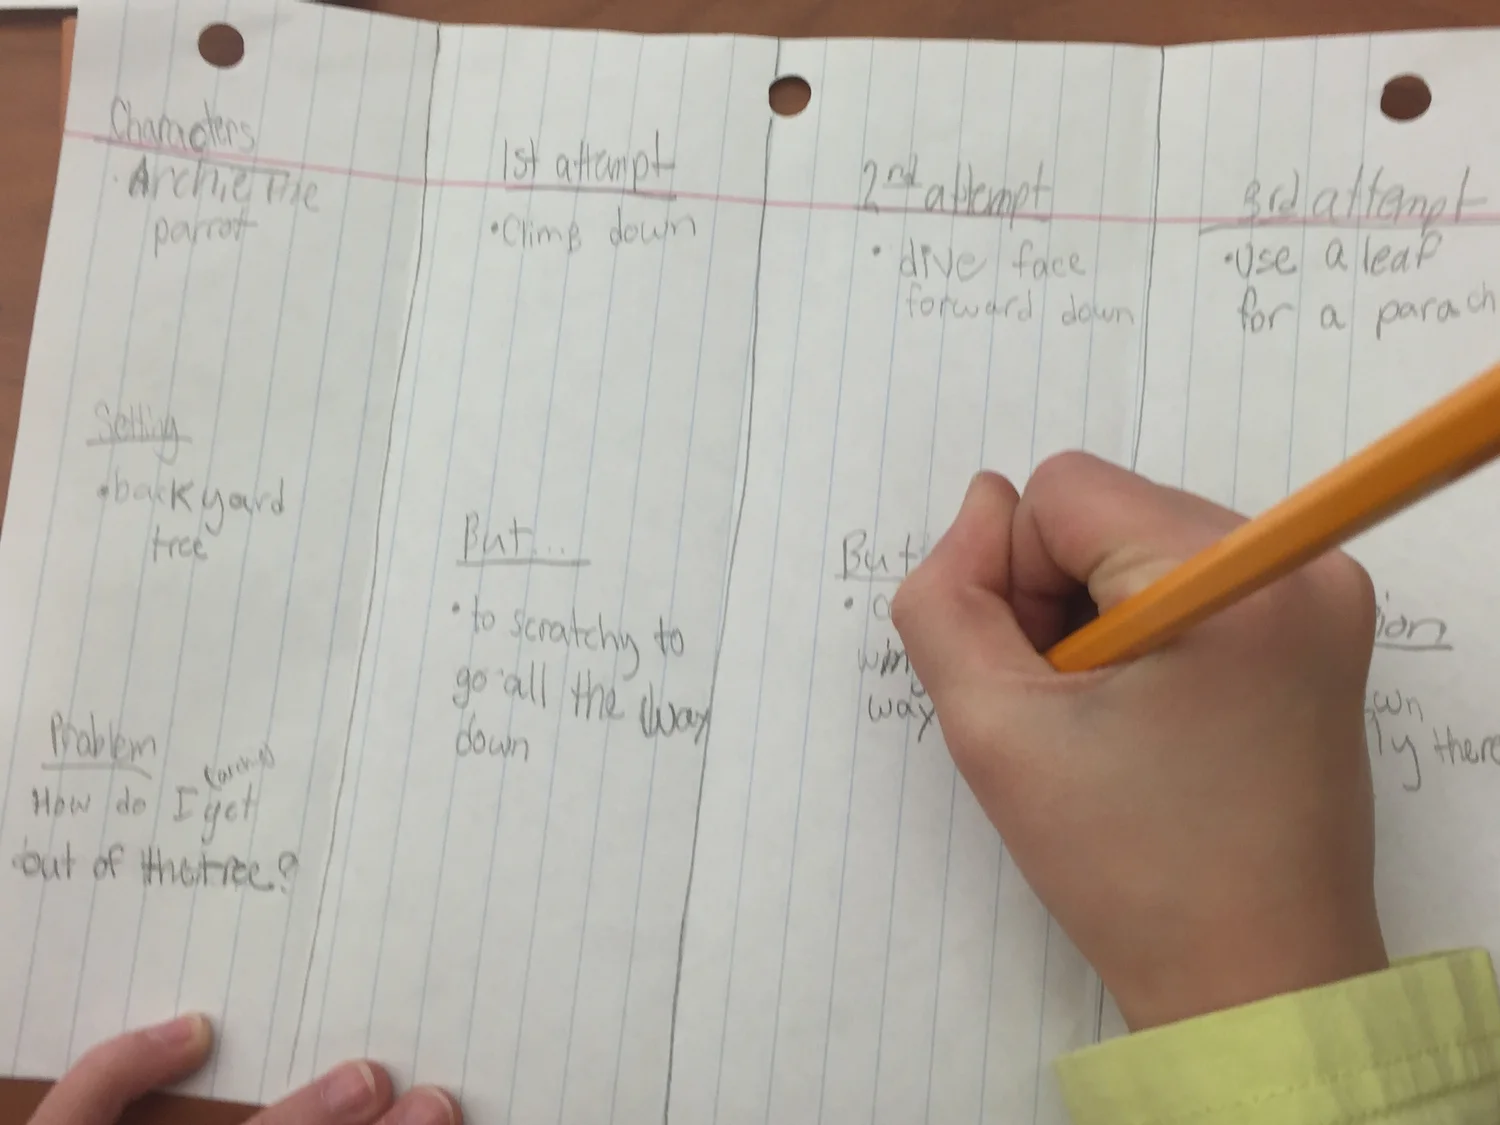 Characters
• Archie the
parrot
Setting
• backyard
tree
Problem
(archie)
How do I get
out of the tree?
1st attempt
• Climb down
But...
• to scratchy to
go all the way
down
2nd attempt
• dive face
forward down
But
way
3rd attempt
• Use a leaf
for a parach
there